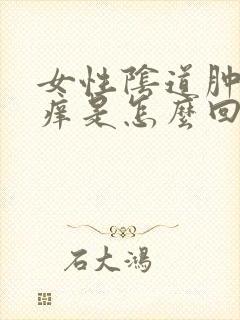 女性陰道肿
痒是怎麼回
石大鴻